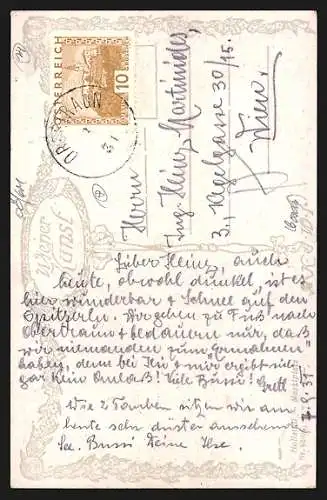 ÖSTERREICH
10
OBERTRAUN
Wiener
Kunst
Herrn
Ing. Heinz Martinides,
3., Kegelgasse 30/15.
Wien.
Lieber Heinz, auch
heute, obwohl dunkel, ist es
hier wunderbar + Schnee auf den
Spitzerln. Wir gehen zu Fuß nach
Obertraun + bedauern nur, daß
wir niemanden zum
haben, denn bei Ihr + mir ergibt sich
gar kein Anlaß! Viele Bussi! Gretl
Wie 2 Tauben sitzen wir am
heute sehr düster aussehenden
See. Bussi Deine Ilse.